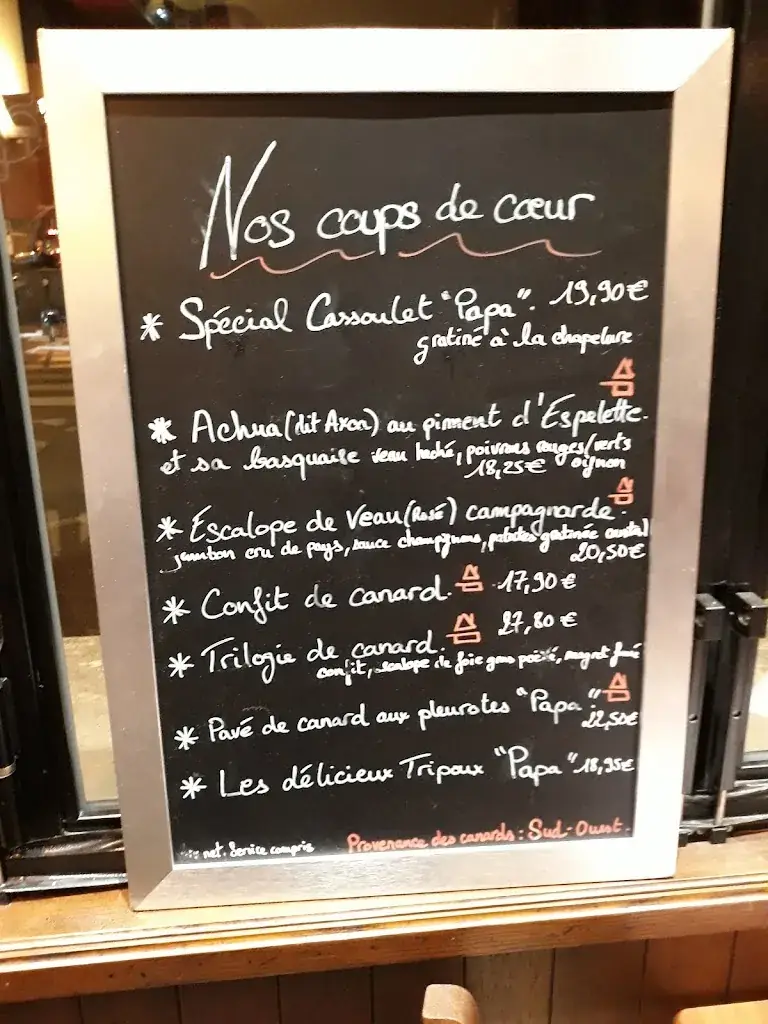 Nos coups de cœur
* Spécial Cassoulet "Papa". 19,90€
gratiné à la chapelure
* Achua (dit Axoa) au piment d'Espelette.
et sa basquaise veau haché, poivrons rouges/verts
18,25€ oignon
* Escalope de Veau (Rosé) campagnarde.
jambon cru de pays, sauce champignons, patates gratinée cantal
20,50€
* Confit de canard. 17,90€
* Trilogie de canard. 27,80€
confit, escalope de foie gras poêlé, magret fumé
* Pavé de canard aux pleurotes "Papa".
22,50€
* Les délicieux Tripoux "Papa" 18,95€
net. Service compris
Provenance des canards : Sud-Ouest.